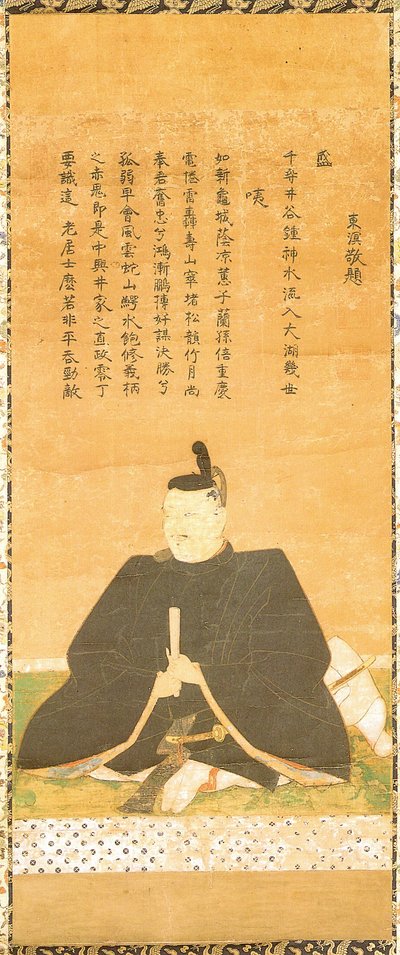 要識這 老居士麼若非平吞勁敵
之赤思即是中興井家之直政零丁
孤弱早會風雲蛇山鰐水飽修義柄
奉君奮忠兮鴻漸鵬搏好謀決勝兮
電捲雷轟壽山窣堵松韻竹月尚
如新龜城蔭凉蕙子蘭孫倍重慶
咦
千尋井谷鍾神水流入大湖幾世
盛
東溟敬題